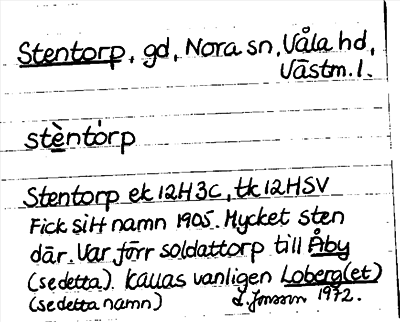 Stentorp, gd, Nora sn, Våla hd,
Västm. l.
stèntórp
Stentorp ek 12H3C, tk 12HSV
Fick sitt namn 1905. Mycket sten
där. Var förr soldattorp till Åby
(se detta). Kallas vanligen Loberg(et)
(se detta namn) L. Jonsson 1972.